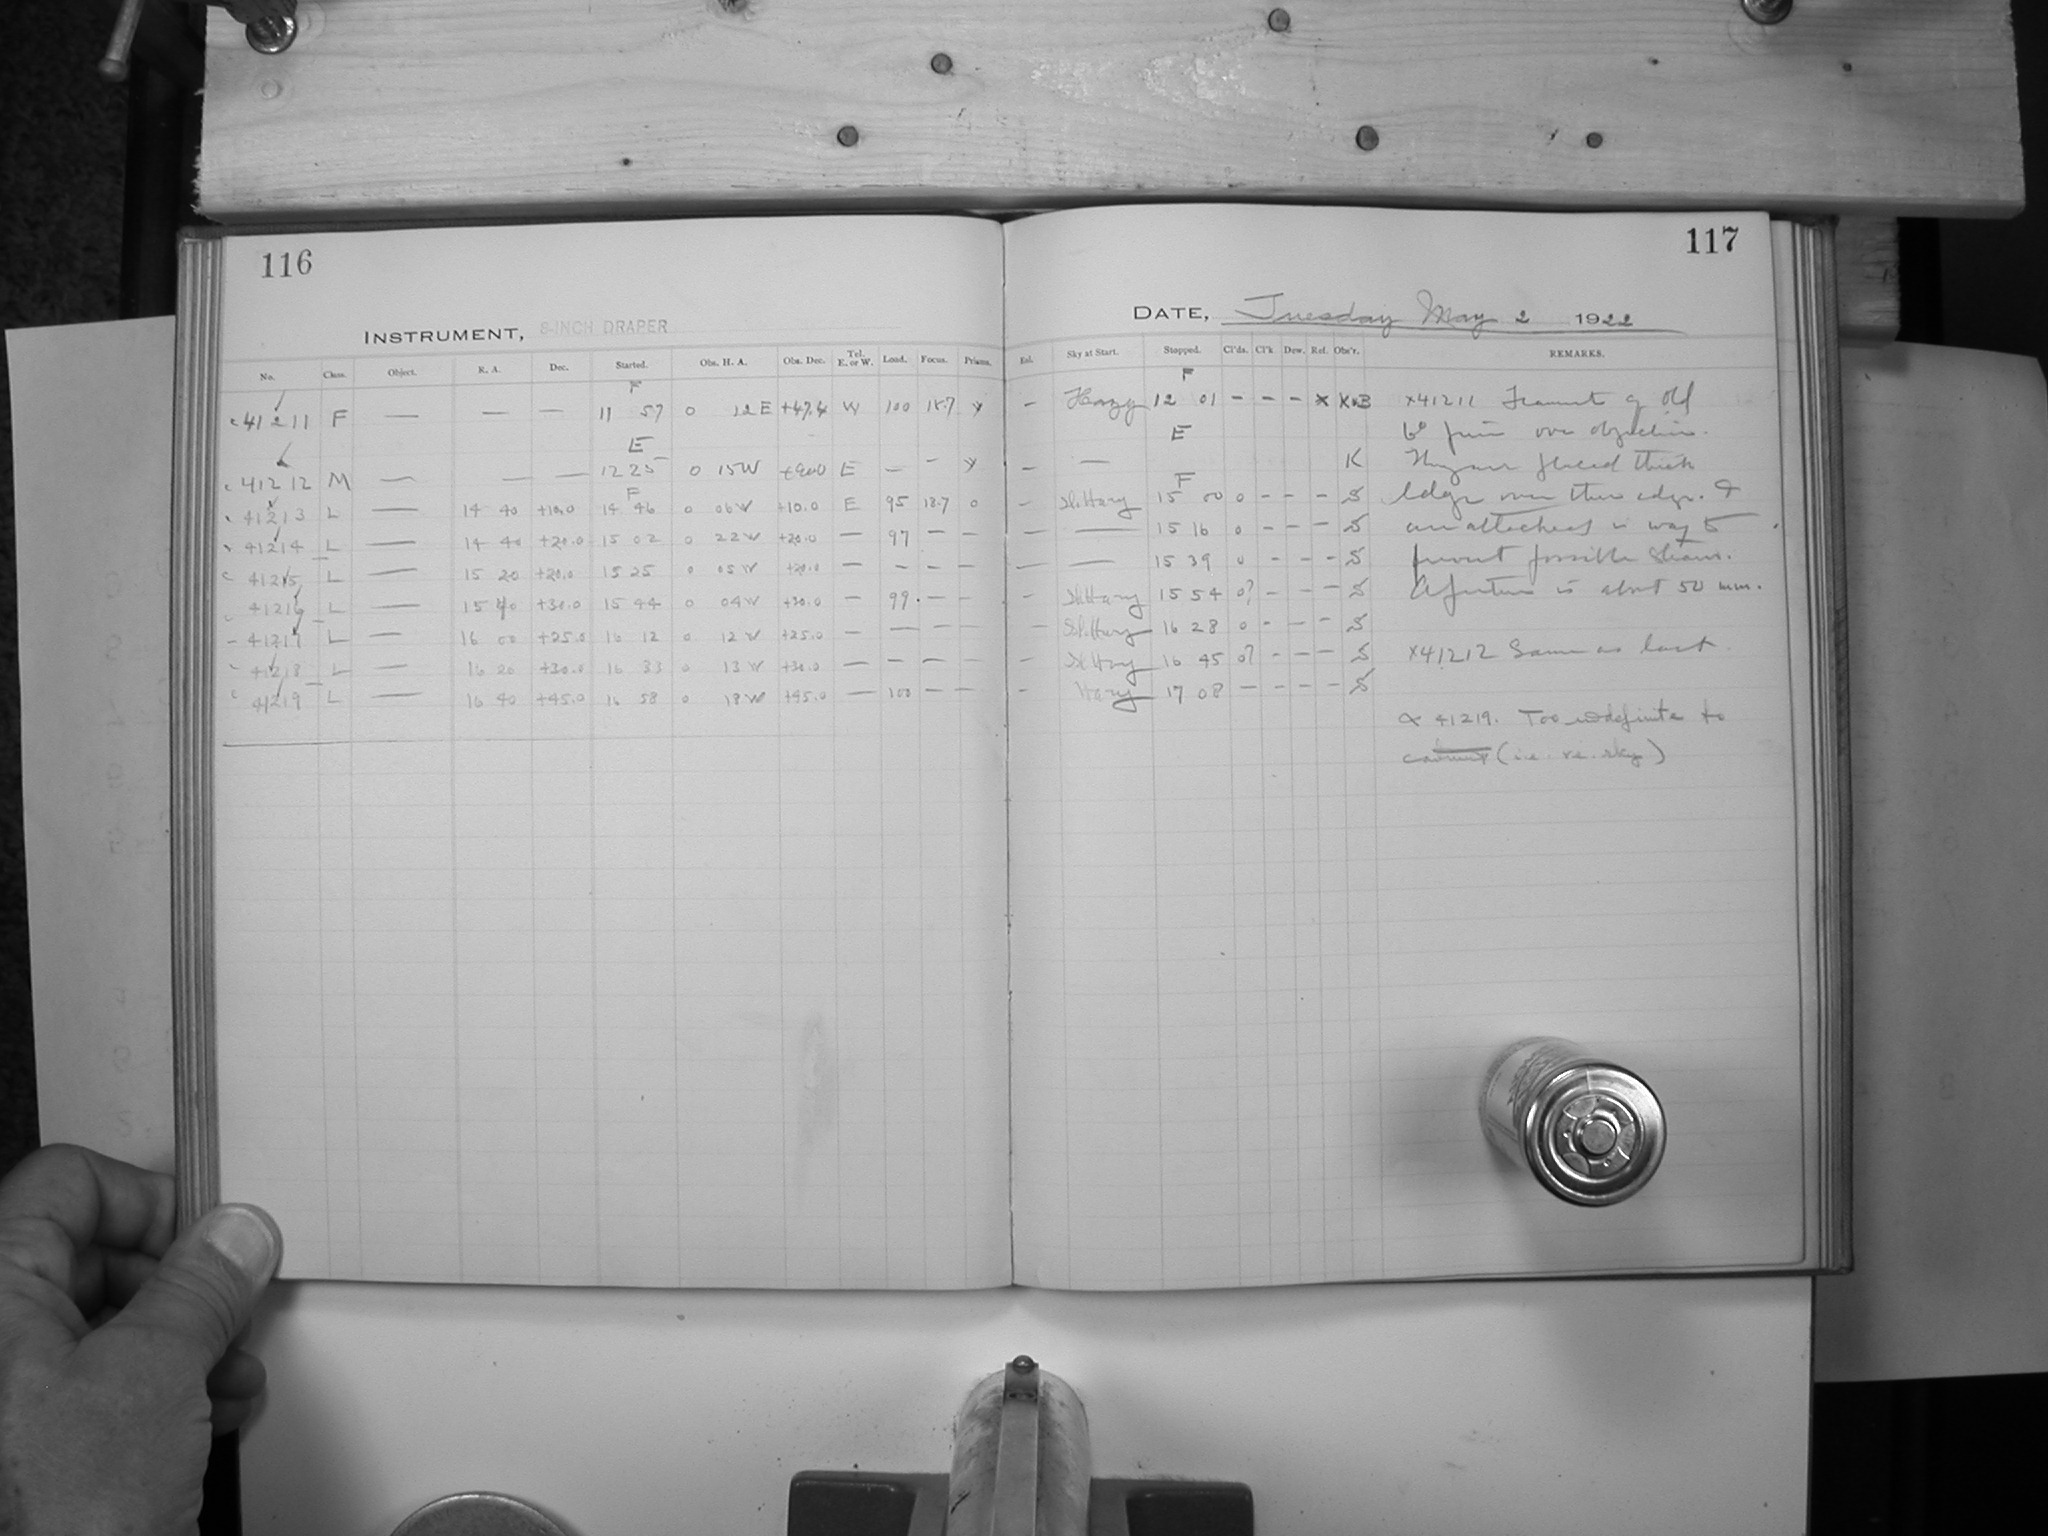 116
117
INSTRUMENT, 8-INCH DRAPER
DATE, Tuesday May 2 1922
No. Class. Object. R. A. Dec. Started. Obs. H. A. Obs. Dec. Tel. E. or W. Load. Focus. Prisms. Sky at Start. Stopped. Cl'ds. Cl'k Dew. Ref. Obs'r. REMARKS.
F F
41211 F — — — 11 57 0 12 E W 100 - Hazy 12 01 - - - x x41211 of old
E E
over objective.
41212 M — — — 12 25 0 15W E — - - — K placed thick
F F
41213 L — 14 40 +10.0 14 46 0 06W +10.0 E 95 0 - 15 00 0 - - - S over
41214 L — 14 40 +20.0 15 02 0 22W +20.0 — 97 - — - — 15 16 0 - - - S
41215 L — 15 20 +20.0 15 25 0 05W +20.0 — - - - — — 15 39 0 - - - S prevent possible
41216 L — 15 40 +30.0 15 44 0 04W +30.0 — 99 - - 15 54 0? - - - S is about 50 mm.
41217 L — 16 00 +25.0 16 12 0 12W +25.0 — — - - 16 28 0 - - - S
41218 L — 16 20 +30.0 16 33 0 13W +30.0 — - - - 16 45 0? - - - S x41212 Same as last
41219 L — 16 40 +45.0 16 58 0 18W +45.0 — 100 - - - Hazy 17 08 - - - - S
x 41219. Too indefinite to
(i.e. re. sky)